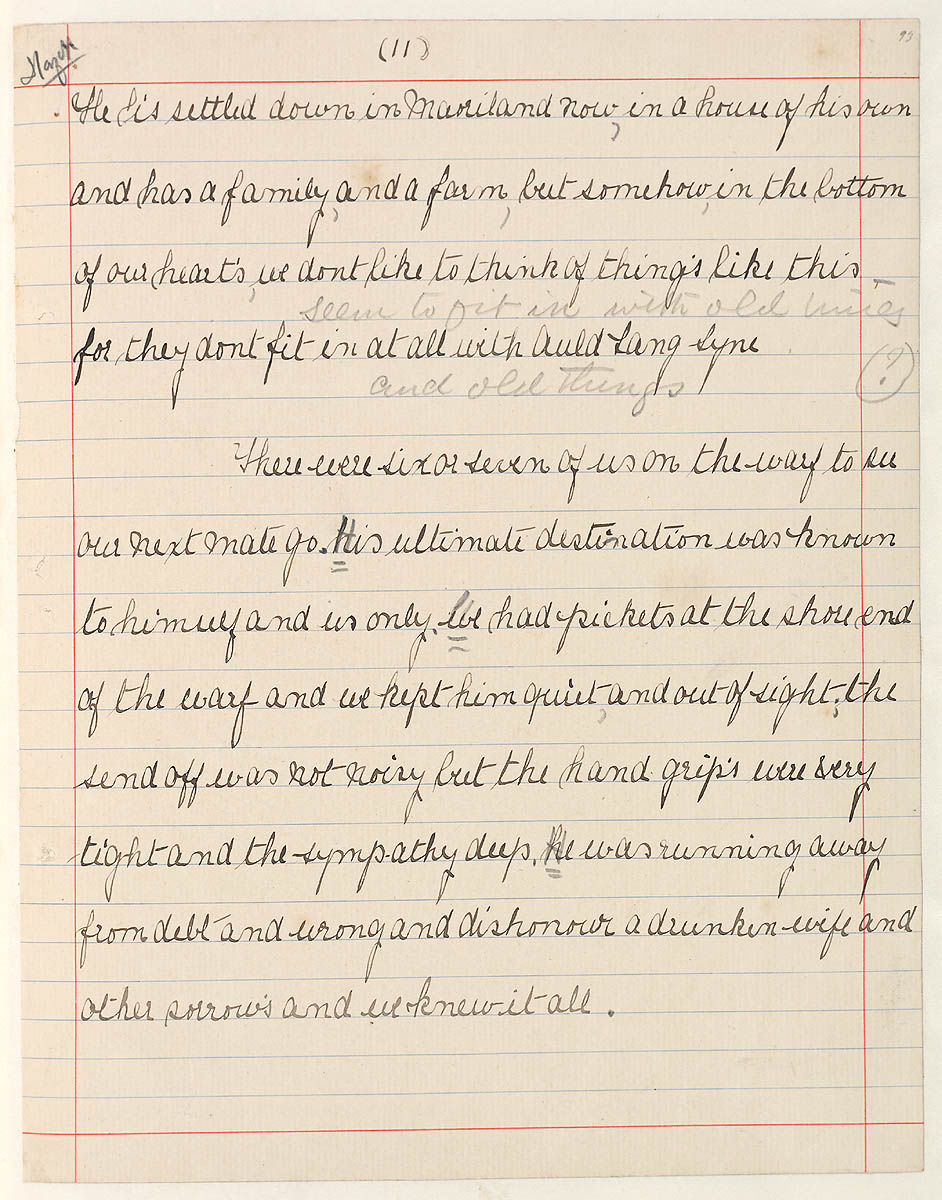 Hayes
(11)
93
He is settled down in Maoriland now, in a house of his own
and has a family, and a farm, but somehow, in the bottom
of our heart's, we dont like to think of thing's like this,
seem to fit in with old times
for they dont fit in at all with Auld Lang Syne
(?)
and old things
There were six or seven of us on the warf to see
our next mate go. His ultimate destination was known
to himself and us only. We had pickets at the shore end
of the warf and we kept him quiet, and out of sight; the
send off was not noisy but the hand grip's were very
tight and the sympathy deep. He was running away
from debt and wrong and dishonour a drunken wife and
other sorrow's and we knew it all.